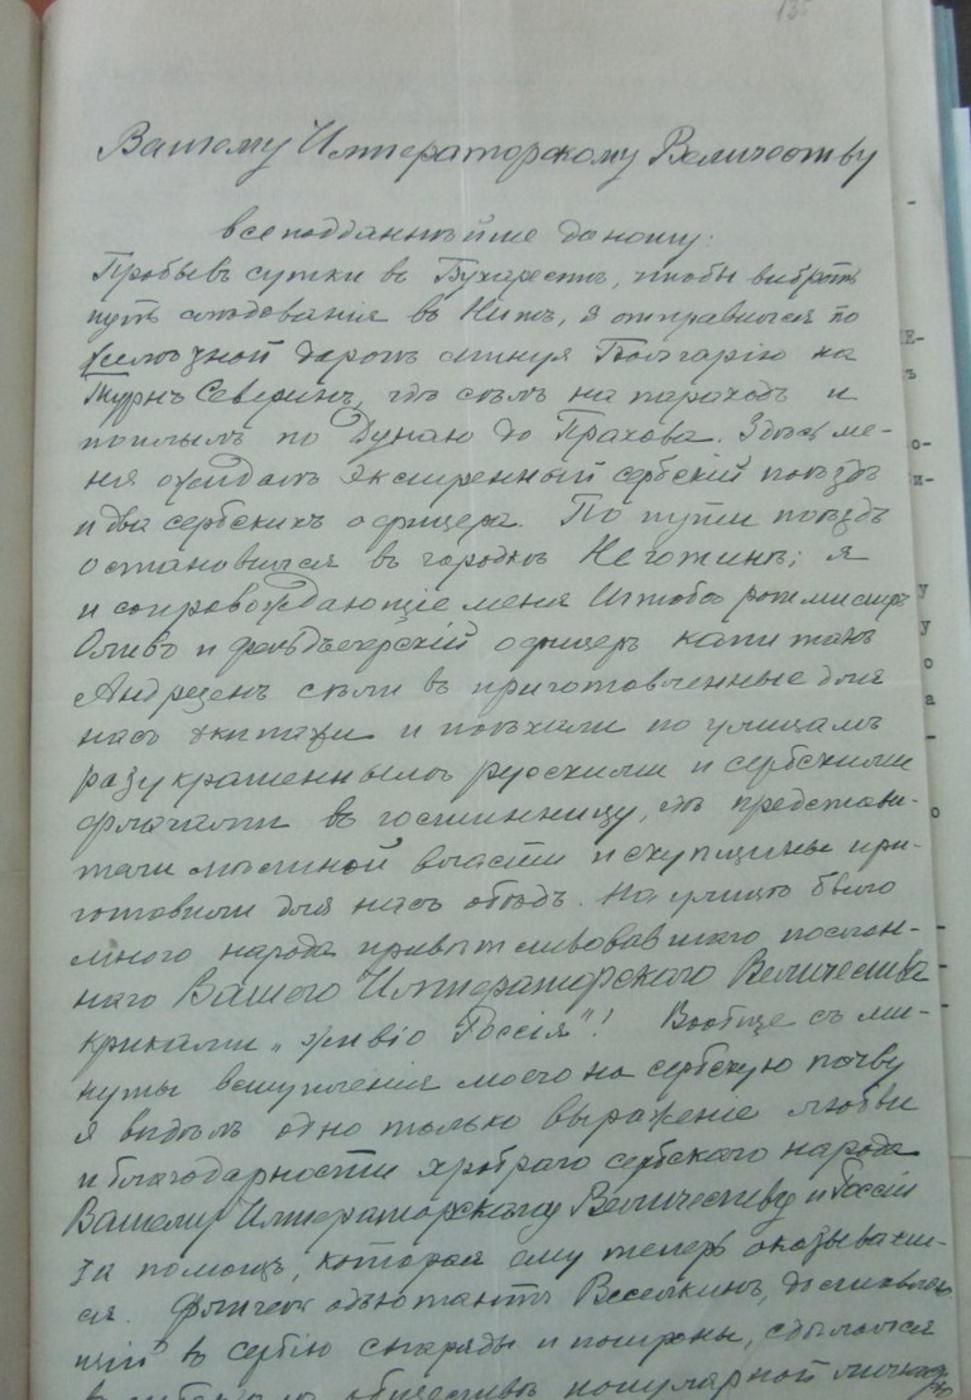 135
Вашему Императорскому Величеству
всеподданнѣйше доношу:
Пробывъ сутки въ Бухарестѣ, чтобы выбрать
путь слѣдованія въ Нишъ, я отправился по
желѣзной дорогѣ минуя Болгарію на
Турнъ Северинъ, гдѣ сѣлъ на пароходъ и
поплылъ по Дунаю до Прахова. Здѣсь ме-
ня ожидалъ экстренный сербскій поѣздъ
и два сербскихъ офицера. По пути поѣздъ
остановился въ городкѣ Неготинѣ; я
и сопровождающіе меня Штабъ ротмистръ
Оливъ и фельдъегерскій офицеръ капитанъ
Андрецень сѣли въ приготовленные для
насъ экипажи и поѣхали по улицамъ
разукрашеннымъ русскими и сербскими
флагами въ гостинницу, гдѣ представи-
тели мѣстной власти и скупщины при-
готовили для насъ обѣдъ. На улицѣ было
много народа привѣтствовавшаго послан-
наго Вашего Императорскаго Величества
криками „живіо Россія"! Вообще съ ми-
нуты вступленія моего на сербскую почву
я видѣлъ одно только выраженіе любви
и благодарности храбраго сербскаго народа
Вашему Императорскому Величеству и Россіи
за помощь, которая ему теперь оказывает-
ся. Флигель адъютантъ Веселкинъ, доставляю-
щій въ Сербію снаряды и патроны, сдѣлался
обществѣ популярной